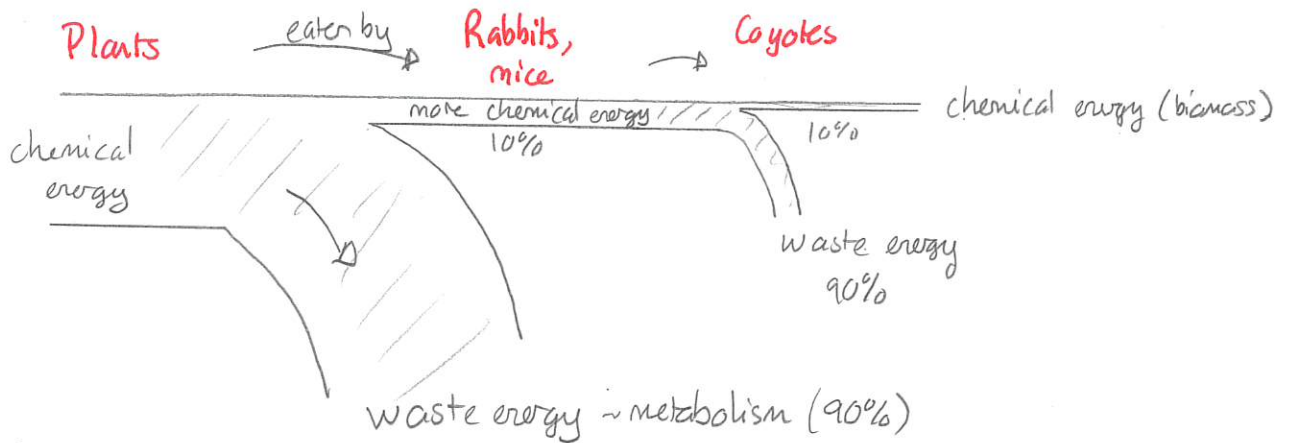 Plants eaten by Rabbits, Coyotes
mice
more chemical energy
10%
10%
chemical energy (biomass)
chemical
energy
waste energy
90%
waste energy ~ metabolism (90%)